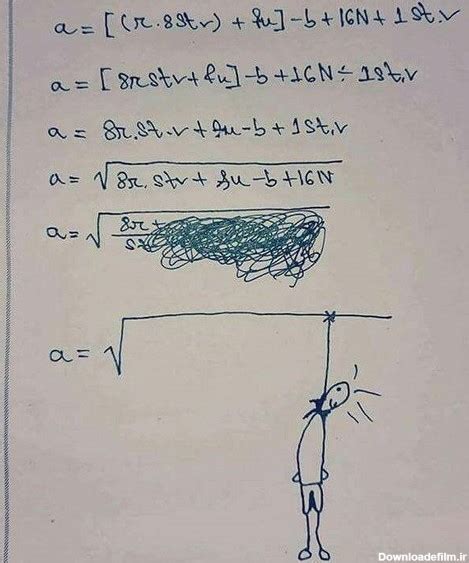 a = [(r.8stv) + fu] - b + 16N + 1st.v
a = [8rstv + fu] - b + 16N ÷ 1st.v
a = 8r.st.v + fu - b + 1st.v
a = √8r.stv + fu - b + 16N
a = √8r
a = √
Downloadefilm.ir